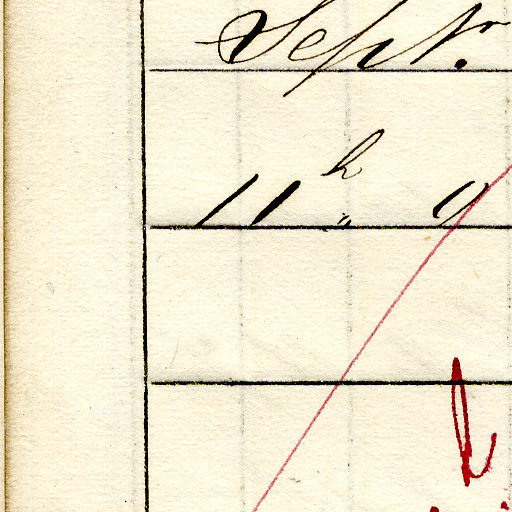 Sept.
11h "